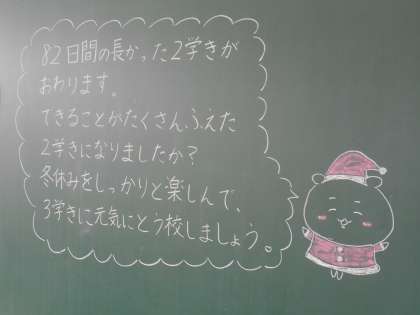 82日間の長かった2学きが
おわります。
できることがたくさんふえた
2学きになりましたか?
冬休みをしっかりと楽しんで、
3学きに元気にとう校しましょう。